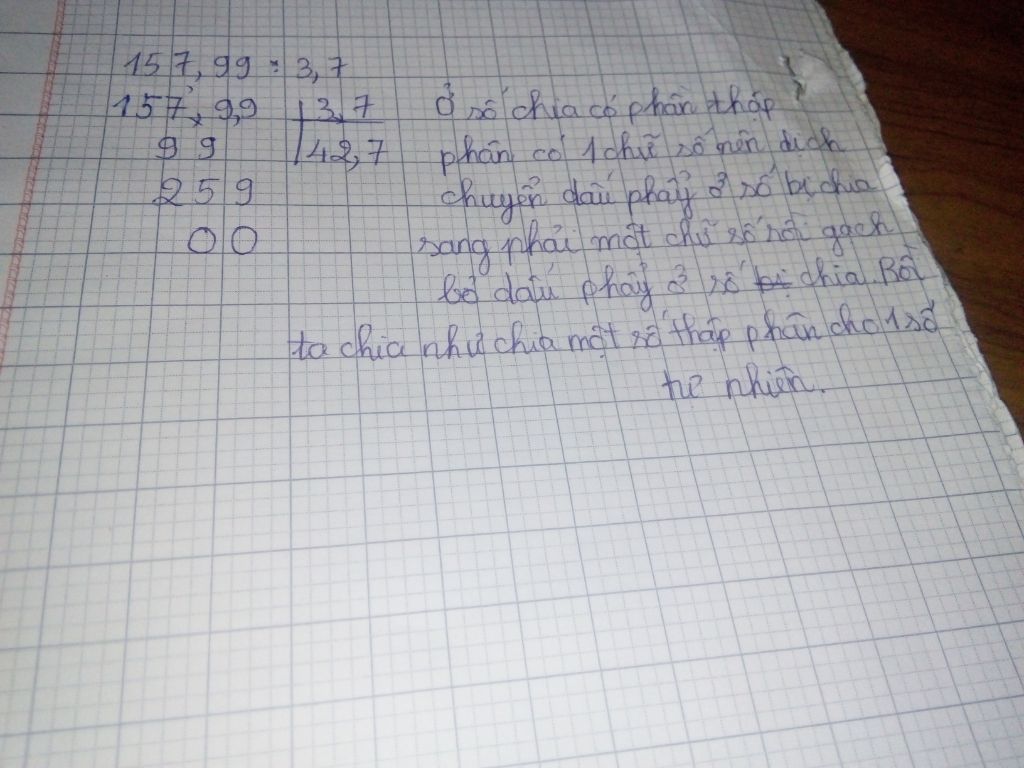 157,99 : 3,7
157,9,9 3,7 Ở số chia có phần thập
99 42,7 phân có 1 chữ số nên dịch
259 chuyển dấu phẩy ở số bị chia
00 sang phải một chữ số rồi gạch
bỏ dấu phẩy ở số bị chia. Rồi
ta chia như chia một số thập phân cho 1 số
tự nhiên.